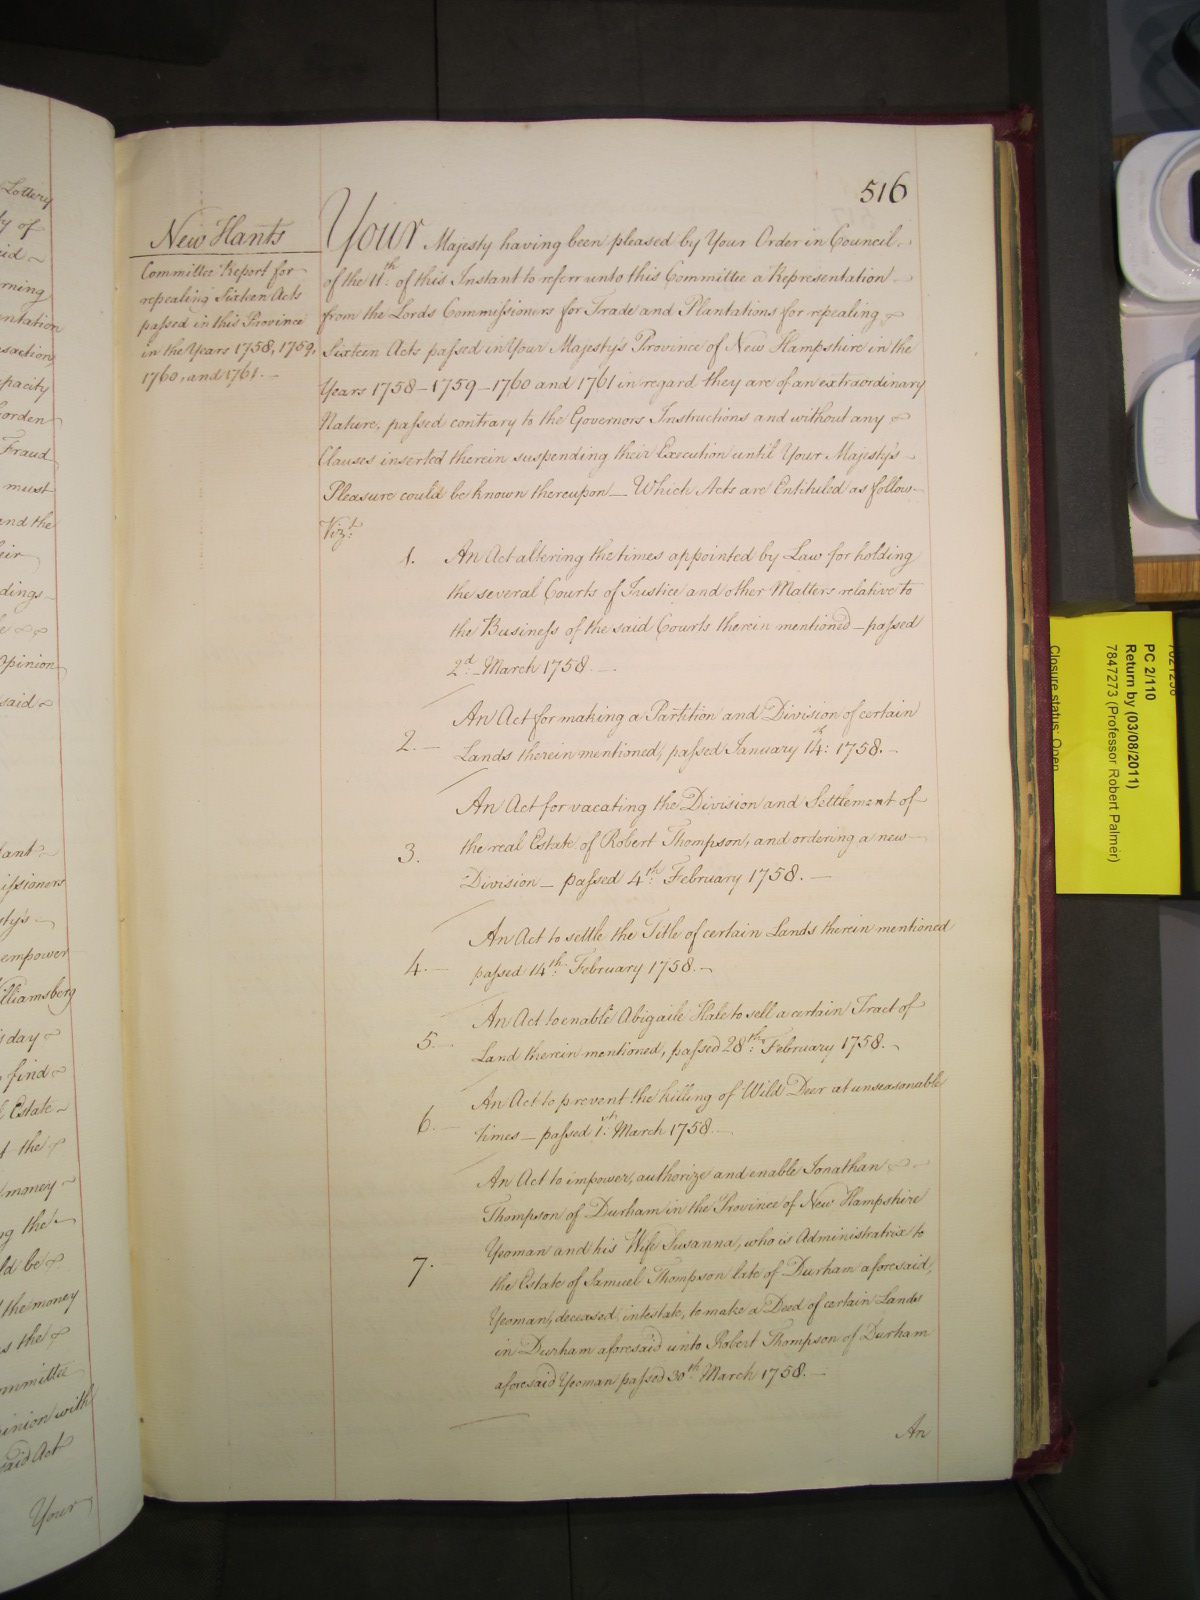 Lottery
ty of
rning
entation
saction
pacity
orden
Fraud
must
and the
eir
dings
Opinion
said
ifsioners
sty's
empower
lliamsberg
sday
find
l Estate
t the
money
ng the
ld be
the money
s the
ommittee
inion with
said Act
Your
516
New Hants
Committee Report for
repealing Sixteen Acts
passed in this Province
in the Years 1758, 1759,
1760, and 1761.
Your Majesty having been pleased by Your Order in Council
of the 11th. of this Instant to referr unto this Committee a Representation
from the Lords Commissioners for Trade and Plantations for repealing
Sixteen Acts passed in Your Majesty's Province of New Hampshire in the
Years 1758 - 1759 - 1760 and 1761 in regard they are of an extraordinary
Nature, passed contrary to the Governors Instructions and without any
Clauses inserted therein suspending their Execution until Your Majesty's
Pleasure could be known thereupon — Which Acts are Entituled as follow
Vizt.
1. An Act altering the times appointed by Law for holding
the several Courts of Justice and other Matters relative to
the Business of the said Courts therein mentioned — passed
2d. March 1758. —
2. — An Act for making a Partition and Division of certain
Lands therein mentioned, passed January 14th: 1758. —
3. An Act for vacating the Division and Settlement of
the real Estate of Robert Thompson, and ordering a new
Division — passed 4th. February 1758. —
4. — An Act to settle the Title of certain Lands therein mentioned
passed 14th. February 1758. —
5. — An Act to enable Abigaile Hale to sell a certain Tract of
Land therein mentioned, passed 28th. February 1758. —
6. — An Act to prevent the killing of Wild Deer at unseasonable
times — passed 1st. March 1758. —
7. An Act to impower, authorize and enable Jonathan
Thompson of Durham in the Province of New Hampshire
Yeoman and his Wife Susanna, who is Administratrix to
the Estate of Samuel Thompson late of Durham aforesaid,
Yeoman, deceased, intestate, to make a Deed of certain Lands
in Durham aforesaid unto Robert Thompson of Durham
aforesaid Yeoman passed 30th. March 1758. —
An
PC 2/110
Return by (03/08/2011)
7847273 (Professor Robert Palmer)
Closure status: Open